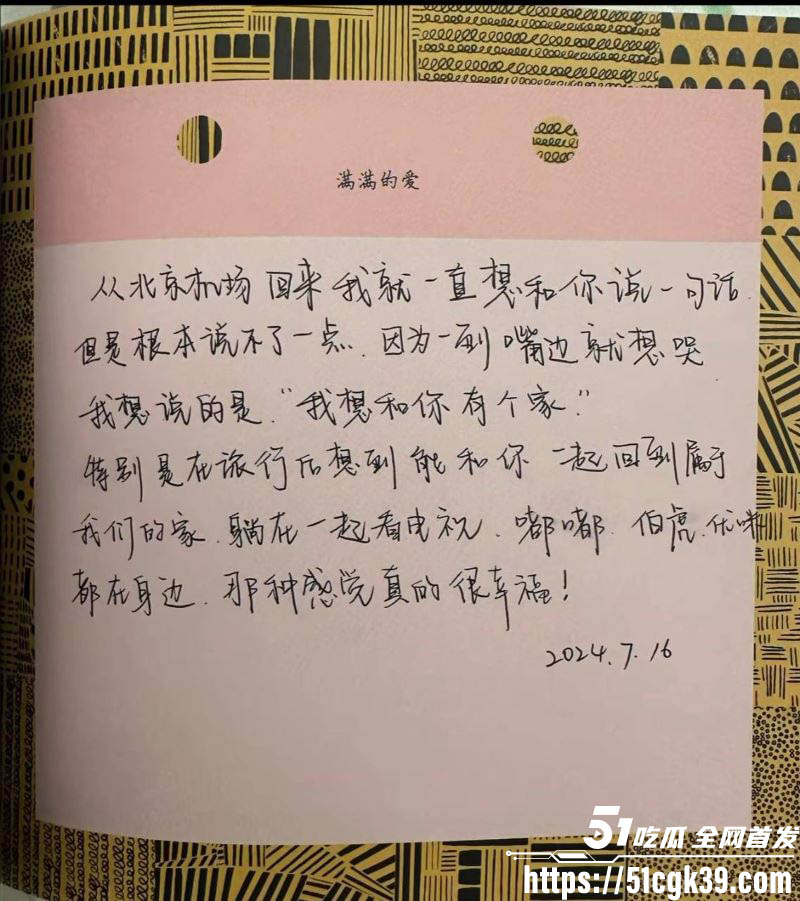 满满的爱
从北京机场回来我就一直想和你说一句话
但是根本说不了一点、因为一到嘴边就想哭
我想说的是、“我想和你有个家.”
特别是在旅行后想到能和你一起回到属于
我们的家、躺在一起看电视、嘟嘟、伯虎、优咪
都在身边、那种感觉真的很幸福!
2024.7.16
51吃瓜 全网首发
https://51cgk39.com